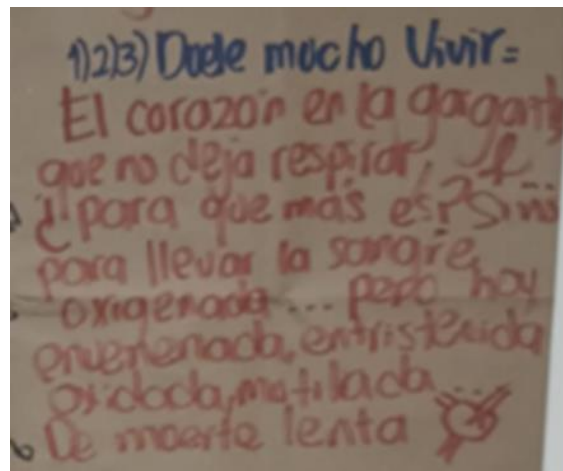 1)2)3) Duele mucho Vivir=
El corazón en la garganta
que no deja respirar,
¿para que más es? Sino
para llevar la sangre
oxigenada... pero hoy
envenenada, entristecida
oxidada, mutilada...
De muerte lenta